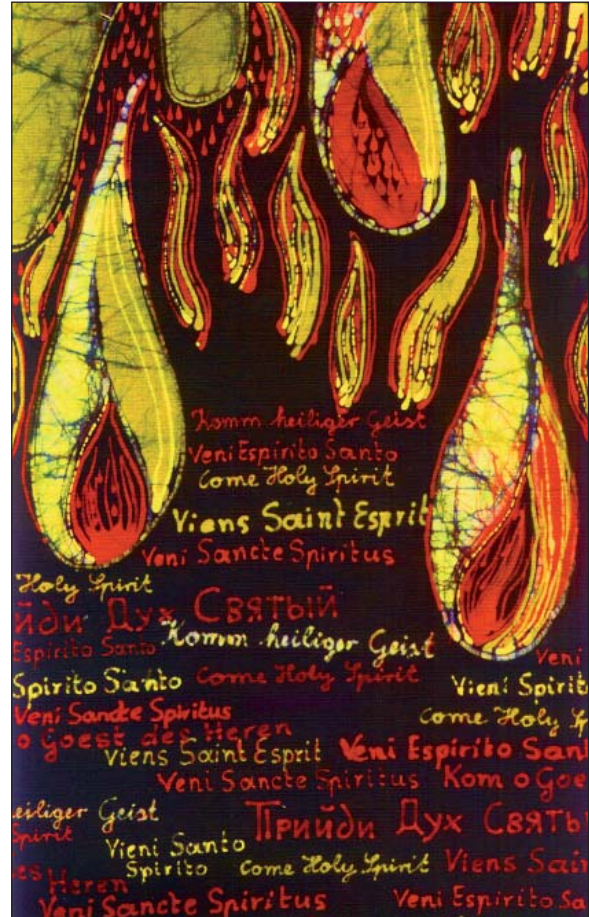 Komm heiliger Geist
Veni Espirito Santo
Come Holy Spirit
Viens Saint Esprit
Veni Sancte Spiritus
Holy Spirit
йди Дух Святый
Espirito Santo Komm heiliger Geist
Veni
Spirito Santo Come Holy Spirit Vieni Spirit
Veni Sancte Spiritus Come Holy Sp
o Goest des Heren
Viens Saint Esprit Veni Espirito Sant
Veni Sancte Spiritus Kom o Goe
eiliger Geist
Spirit
Прийди Дух Святы
Vieni Santo
Spirito Come Holy Spirit Viens Sain
es Heren
Veni Sancte Spiritus Veni Espirito Sa